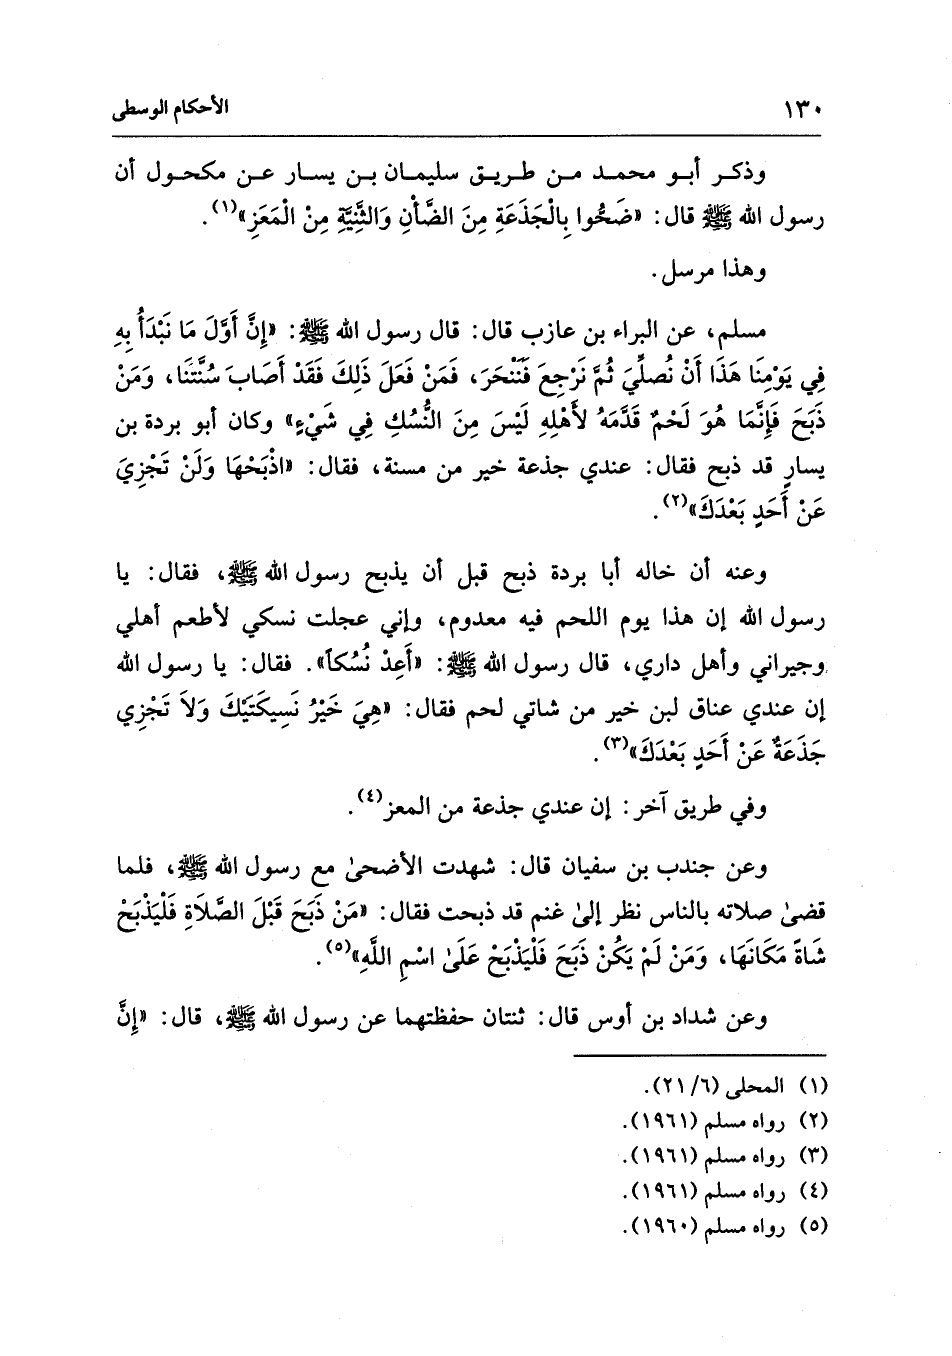 ١٣٠ الأحكام الوسطى
وذكر أبو محمد من طريق سليمان بن يسار عن مكحول أن
رسول الله ﷺ قال: «ضَحُّوا بِالْجَذَعَةِ مِنَ الضَّأْنِ وَالثَّنِيَّةِ مِنْ الْمَعَزِ»(١).
وهذا مرسل.
مسلم، عن البراء بن عازب قال: قال رسول الله ﷺ: «إِنَّ أَوَّلَ مَا نَبْدَأُ بِهِ
فِي يَوْمِنَا هَذَا أَنْ نُصلِّيَ ثُمَّ نَرْجِعَ فَنَنْحَرَ، فَمَنْ فَعَلَ ذَلِكَ فَقَدْ أَصَابَ سُنَّتَنَا، وَمَنْ
ذَبَحَ فَإِنَّمَا هُوَ لَحْمٌ قَدَّمَهُ لأَهْلِهِ لَيْسَ مِنَ النُّسُكِ فِي شَيْءٍ» وكان أبو بردة بن
يسارٍ قد ذبح فقال: عندي جذعة خير من مسنة، فقال: «اذْبَحْهَا وَلَنْ تَجْزِيَ
عَنْ أَحَدٍ بَعْدَكَ»(٢).
وعنه أن خاله أبا بردة ذبح قبل أن يذبح رسول الله ﷺ، فقال: يا
رسول الله إن هذا يوم اللحم فيه معدوم، وإني عجلت نسكي لأطعم أهلي
وجيراني وأهل داري، قال رسول الله ﷺ: «أَعِدْ نُسُكاً». فقال: يا رسول الله
إن عندي عناق لبن خير من شاتي لحم فقال: «هِيَ خَيْرُ نَسِيكَتَيْكَ وَلاَ تَجْزِي
جَذَعَةٌ عَنْ أَحَدٍ بَعْدَكَ»(٣).
وفي طريق آخر: إن عندي جذعة من المعز(٤).
وعن جندب بن سفيان قال: شهدت الأضحىٰ مع رسول الله ﷺ، فلما
قضىٰ صلاته بالناس نظر إلىٰ غنم قد ذبحت فقال: «مَنْ ذَبَحَ قَبْلَ الصَّلاَةِ فَلْيَذْبَحْ
شَاةً مَكَانَهَا، وَمَنْ لَمْ يَكُنْ ذَبَحَ فَلْيَذْبَحْ عَلَىٰ اسْمِ اللَّهِ»(٥).
وعن شداد بن أوس قال: ثنتان حفظتهما عن رسول الله ﷺ، قال: «إِنَّ
(١) المحلى (٦/ ٢١).
(٢) رواه مسلم (١٩٦١).
(٣) رواه مسلم (١٩٦١).
(٤) رواه مسلم (١٩٦١).
(٥) رواه مسلم (١٩٦٠).